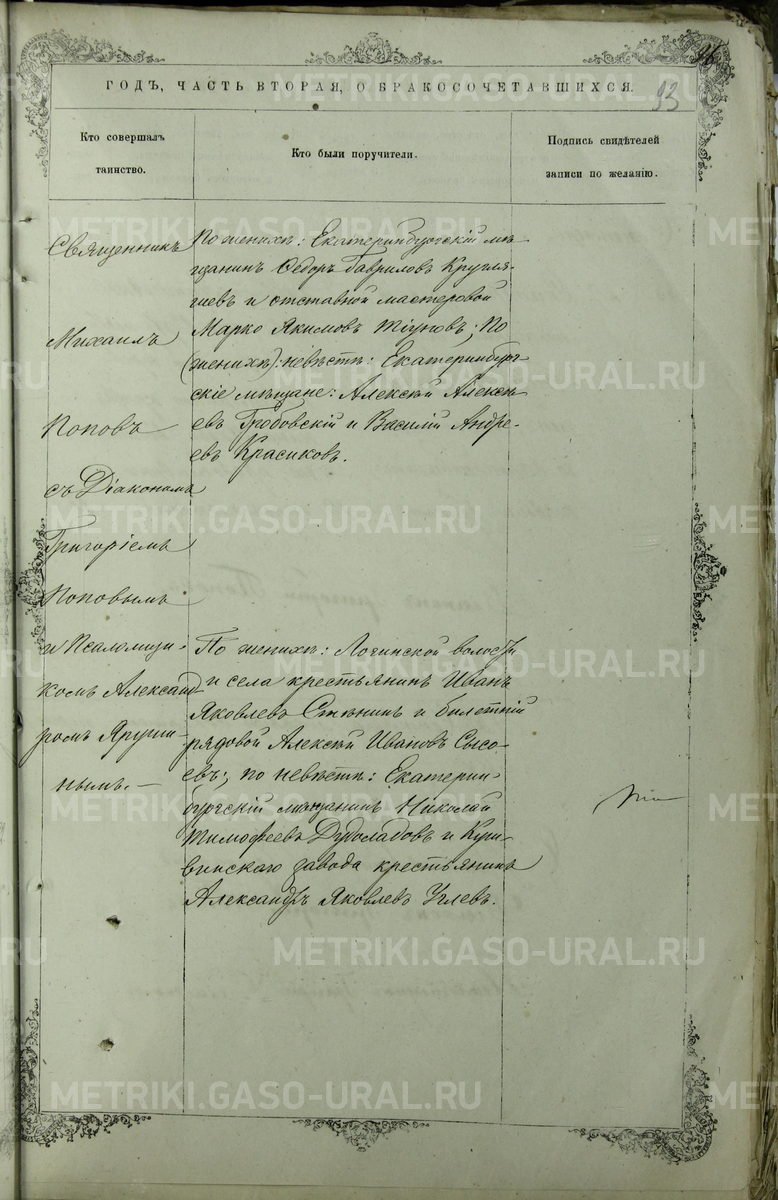 96
93
ГОДЪ, ЧАСТЬ ВТОРАЯ, О БРАКОСОЧЕТАВШИХСЯ.
Кто совершалъ
таинство.
Кто были поручители.
Подпись свидѣтелей
записи по желанію.
Священникъ
Михаилъ
Поповъ
съ Діакономъ
Григоріемъ
Поповымъ
и Псаломщи-
комъ Александ
ромъ
нымъ. —
По женихѣ: Екатеринбургскій мѣ
щанинъ Ѳедоръ Гавриловъ Кругля-
шевъ и отставной мастеровой
Марко Якимовъ Тіуновъ; По
(женихѣ): невѣстѣ: Екатеринбург-
скіе мѣщане: Алексѣй Алексѣ
евъ Гробовскій и Василій Андре-
евъ Красиковъ.
По женихѣ: Логинской волости
и села крестьянинъ Иванъ
Яковлевъ и билетный
рядовой Алексѣй Ивановъ Сысо-
евъ; по невѣстѣ: Екатерин-
бургскій мѣщанинъ Николай
Тимофеевъ Дудоладовъ и Куш-
винскаго завода крестьянинъ
Александръ Яковлевъ Углевъ.
METRIKI.GASO-URAL.RU